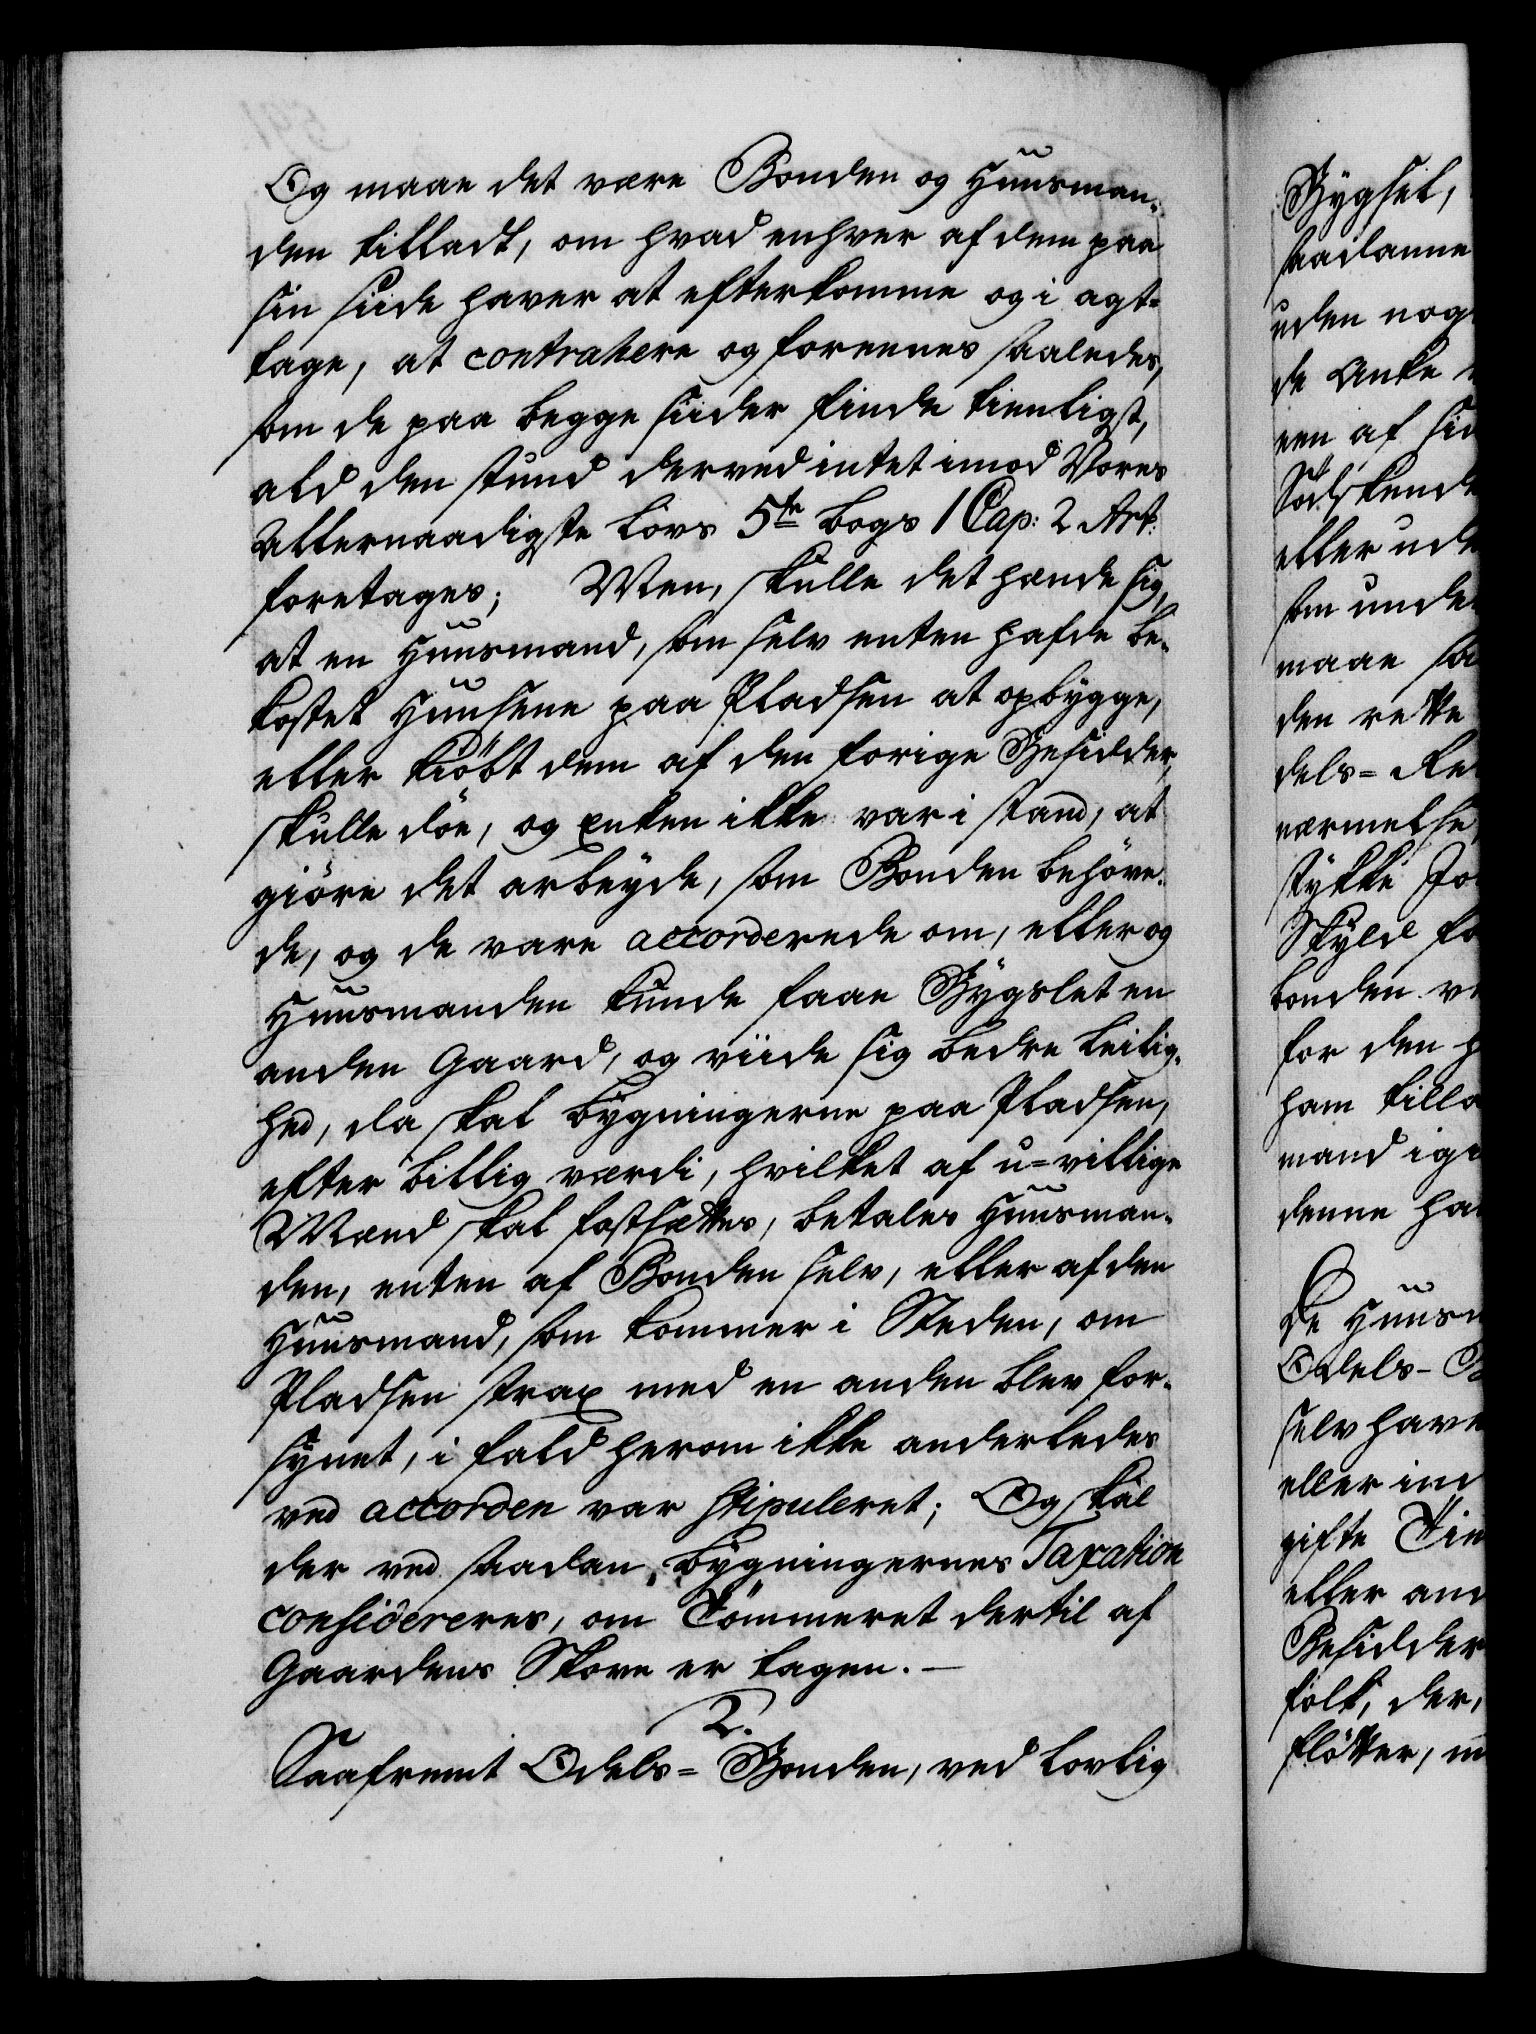 Og maae det være Bonden og Huusman-
den tilladt, om hvad enhver af dem paa
sin siide haver at efterkomme og i agt-
tage, at contrahere og foreenes saaledes,
som de paa begge siider finde tienligst,
ald den stund derved intet imod Vores
Allernaadigste Lovs 5te Bogs 1 Cap: 2 Art:
foretages; Men, skulle det hænde sig,
at en Huusmand, som selv enten hafde be-
kostet Huusene paa Pladsen at opbygge,
eller kiöbt dem af den forige Besidder,
skulle döe, og Enken ikke var i stand, at
giöre det arbeyde, som Bonden behöve-
de, og de vare accorderede om, eller og
Huusmanden kunde faae Bygslet en
anden Gaard, og viide sig bedre leilig-
hed, da skal bygningerne paa Pladsen,
efter billig værdi, hvilket af u=villige
Mænd skal fastsættes, betales Huusman-
den, enten af Bonden selv, eller af den
Huusmand, som kommer i Steden, om
Pladsen strax med en anden blev for-
synet, i fald herom ikke anderledes
ved accorden var stipuleret; Og skal
der ved saadan bygningernes Taxation
considereres, om Tömmeret dertil af
Gaardens Skove er tagen. —
2.
Saafremt Odels= Bonden, ved lovlig
Bygsel,
saadanne
uden nog
de Anke
een af si
Södskende
eller ude
som unde
maae sa
den rette
dels= Re
nærmelse
stykke Jo
Skyld fo
bonden v
for den h
ham tilla
mand igi
denne ha
De Huusm
Odels- B
selv have
eller ind
gifte Tie
eller and
Besidder
folk, der,
flötter, m